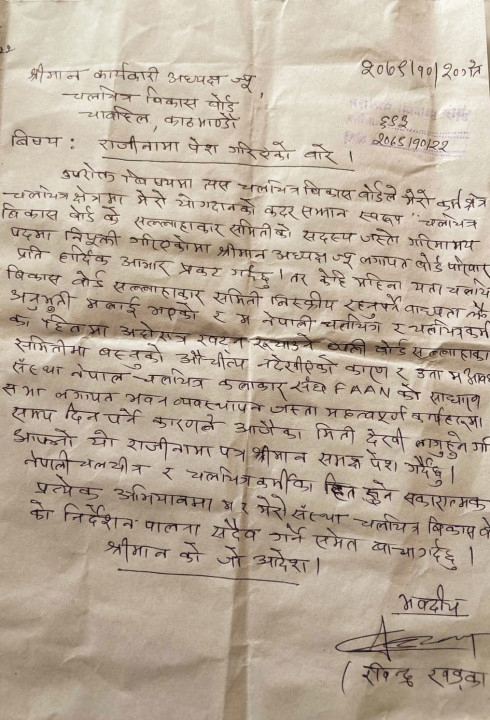 श्रीमान कार्यकारी अध्यक्ष ज्यू,
२०७९/१०/२० गते
चलचित्र विकास बोर्ड
चावहिल, काठमाण्डौ
६६६
2079/10/22
विषय : राजीनामा पेश गरिएको बारे ।
उपरोक्त विषयमा त्यस चलचित्र विकास बोर्डले मेरो कर्म क्षेत्र
चलचित्र क्षेत्रमा मेरो योगदानको कदर सम्मान स्वरूप चलचित्र
विकास बोर्ड को सल्लाहाकार समितीको सदस्य जस्तो गरिमामय
पदमा नियुक्ती गरिएकोमा श्रीमान अध्यक्ष ज्यू लगायत बोर्ड परिवार
प्रति हार्दिक आभार प्रकट गर्दछु । तर केहि महिना यता चलचित्र
विकास बोर्ड सल्लाहाकार समिती निस्क्रीय रहनुपर्ने वाध्यता
अनुभुती मलाई भएको र म नेपाली चलचित्र र चलचित्रकर्मी
का हितमा अहोरात्र बोर्ड सल्लाहाकार
समितीमा बस्नुको औचीत्य नदेखीएको कारण र उता म आबद्ध
संस्था नेपाल चलचित्र कलाकार संघ FAAN को साधारण
सभा लगायत भवन व्यवस्थापन जस्ता महत्वपूर्ण कार्यहरूमा
समय दिन पर्ने कारणले आजैका मिती देखी लागुहुने गरि
आफ्नो यो राजीनामा पत्र श्रीमान समक्ष पेश गर्दछु ।
नेपाली चलचीत्र र चलचित्रकर्मीका हित हुने सकारात्मक
प्रत्येक अभियानमा म र मेरो संस्था चलचित्र विकास बोर्ड
को निर्देशन पालना सदैव गर्ने समेत वाचा गर्दछु ।
श्रीमान को जो आदेश ।
भवदीय
(रविन्द्र खड्का